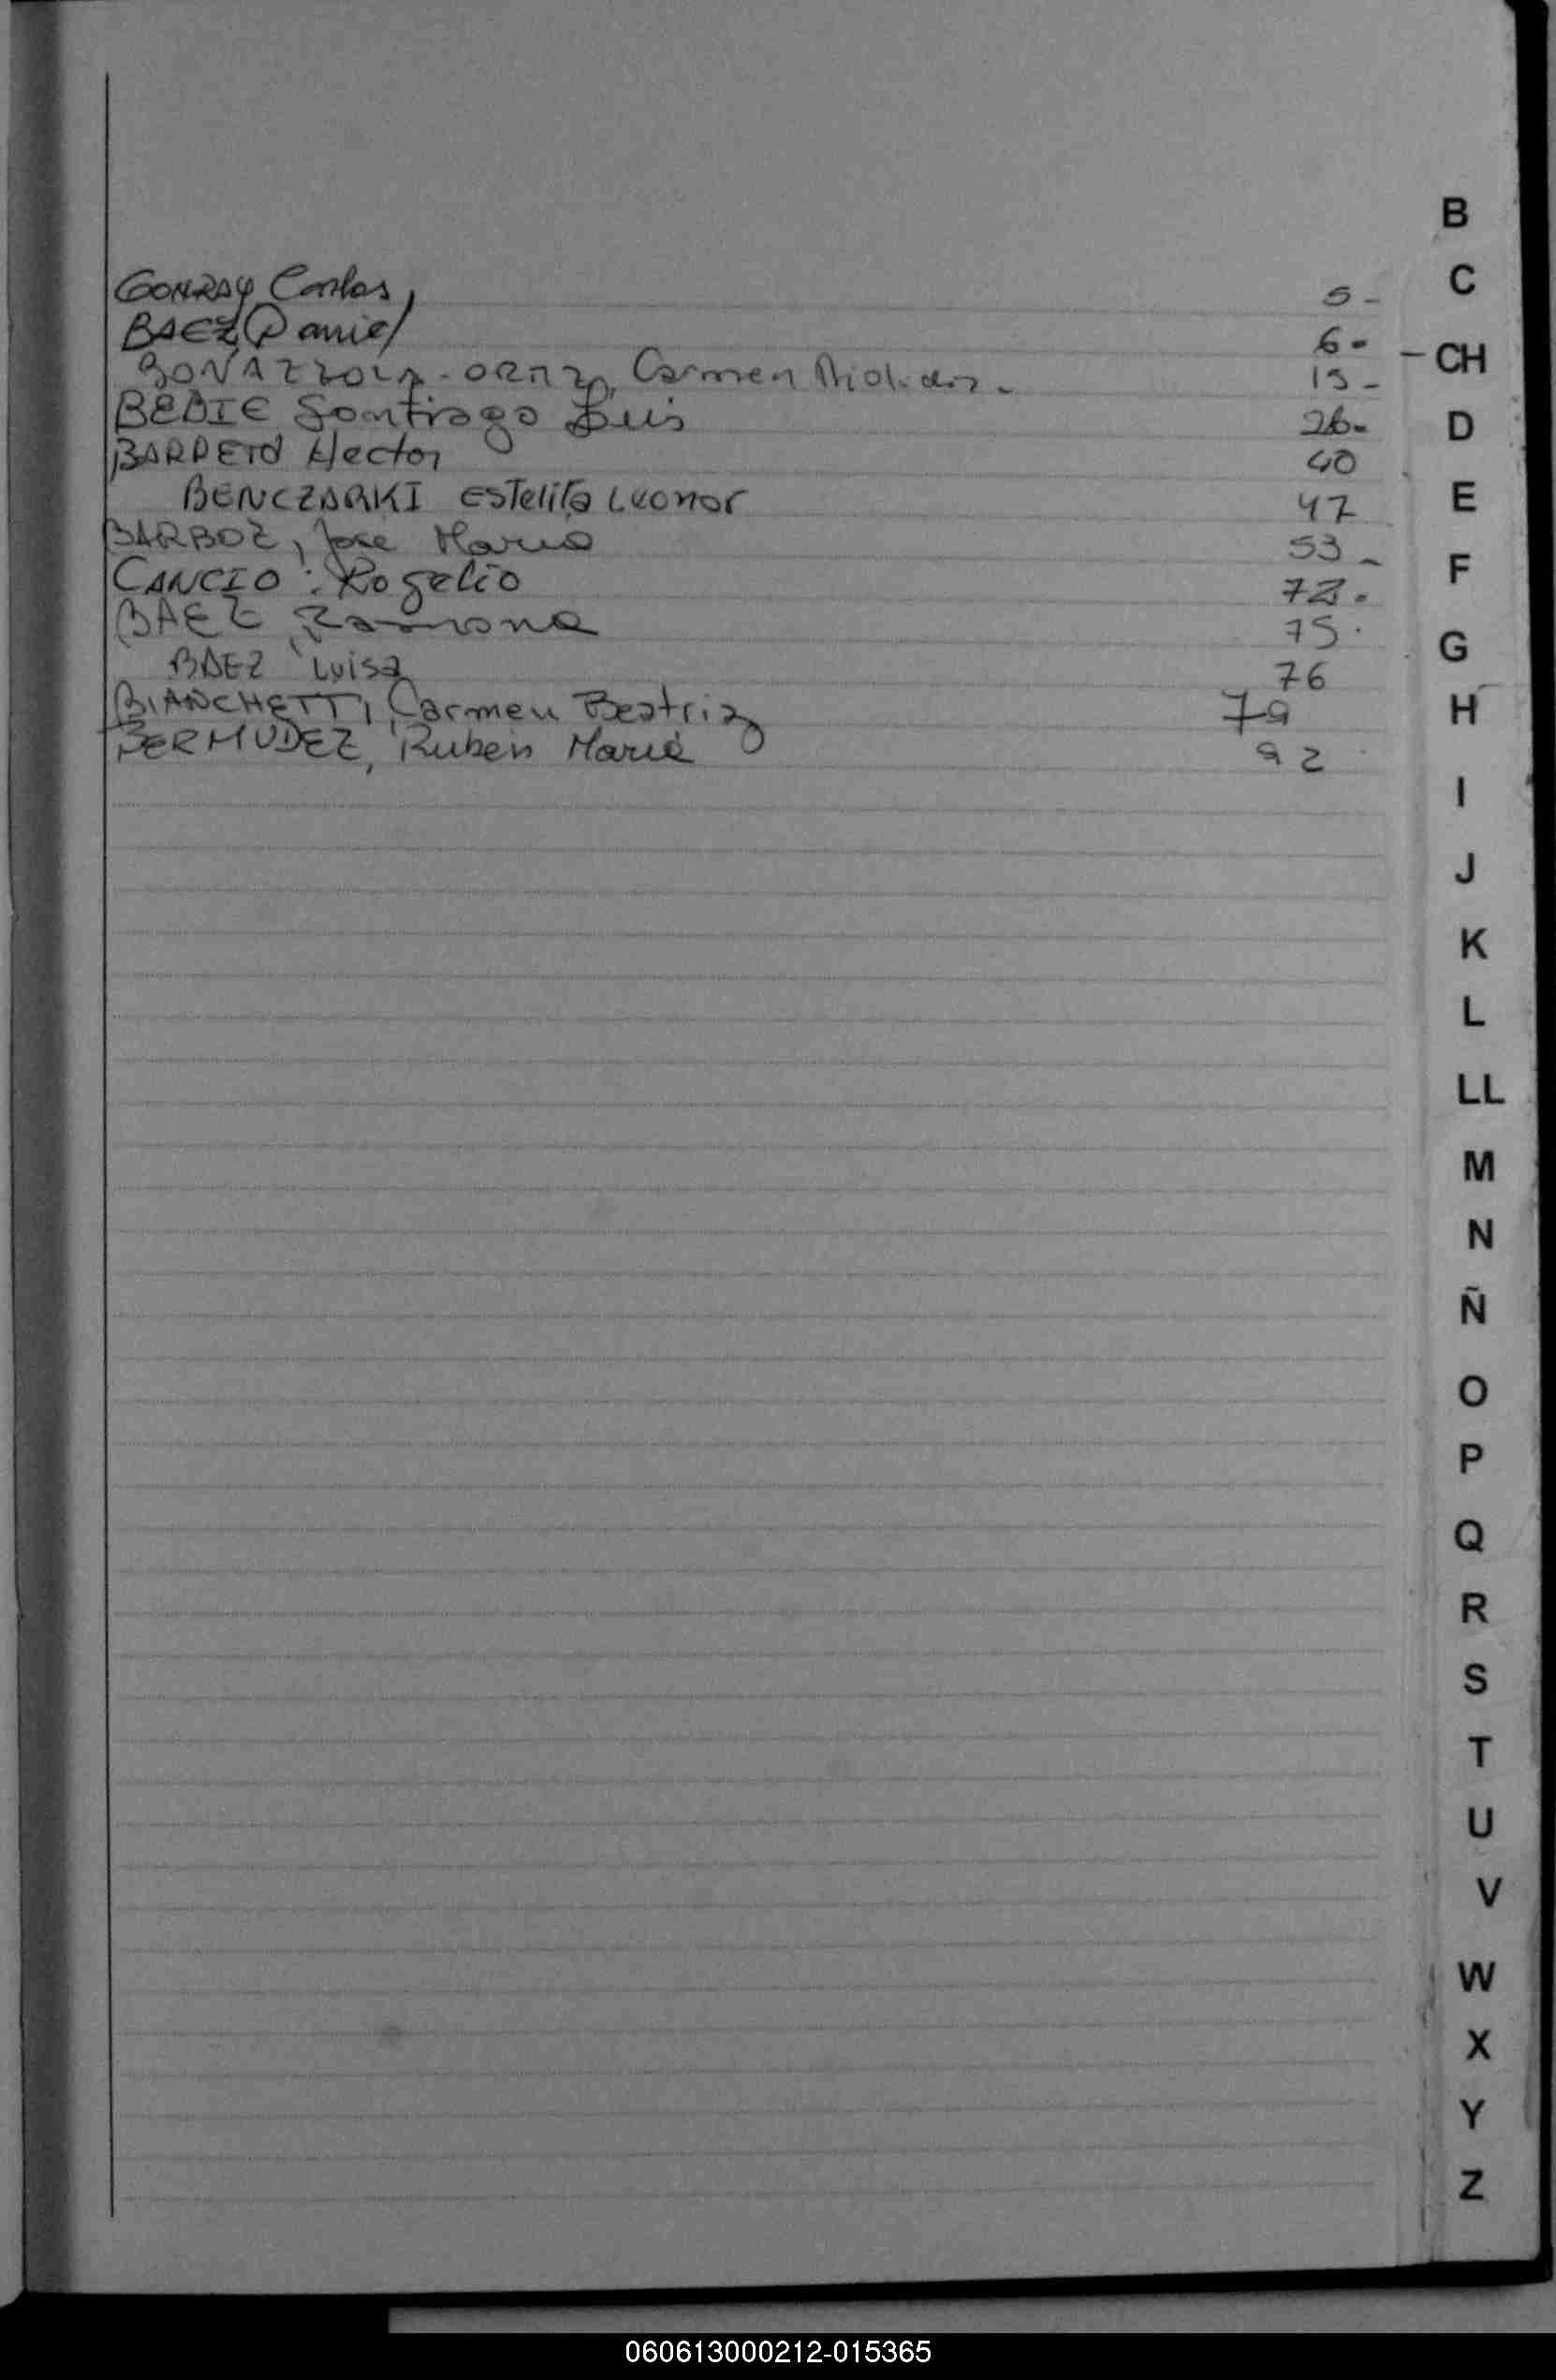 GONRAY Carlos, 5-
BAEZ, Daniel 6-
BONAZZOLA - ORTIZ, Carmen 15-
BEDIE Santiago Luis 26-
BARRETO Hector 40
BENCZARKI Estelita Leonor 47
BARBOZ, Jose Maria 53-
CANCIO: Rogelio 72.
BAEZ, Ramona 75.
BAEZ Luisa 76
BIANCHETTI, Carmen Beatriz 79
BERMUDEZ, Ruben Maria 92
B
C
- CH
D
E
F
G
H
I
J
K
L
LL
M
N
Ñ
O
P
Q
R
S
T
U
V
W
X
Y
Z
060613000212-015365